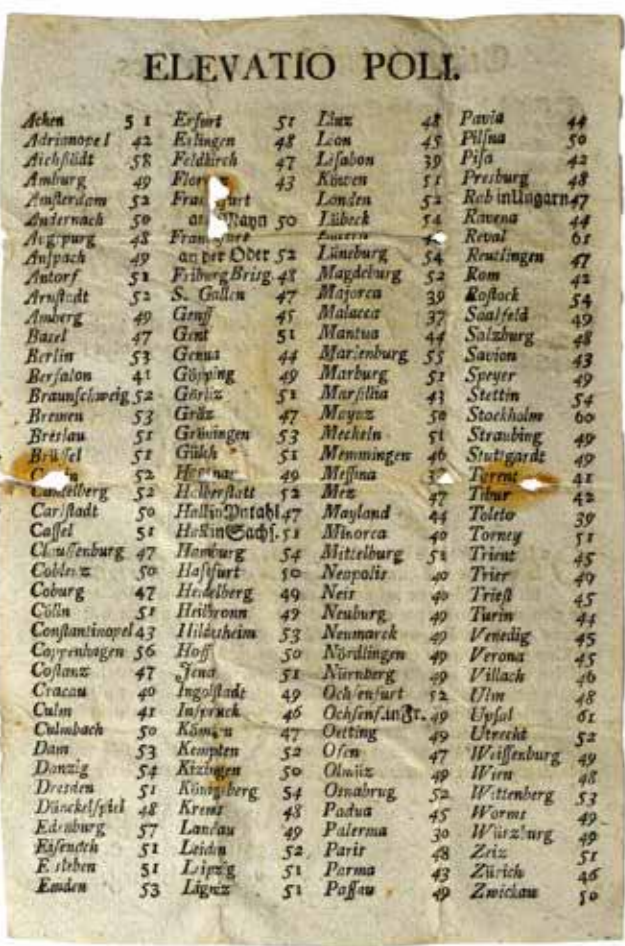 ELEVATIO POLI.
Achen 51
Adrianopel 42
Aichstädt 58
Amburg 49
Amsterdam 52
Andernach 50
Augspurg 48
Anspach 49
Antorf 51
Arnstadt 52
Amberg 49
Basel 47
Berlin 53
Bersalon 41
Braunschweig 52
Bremen 53
Breslau 51
Brüssel 51
52
Cantelberg 52
Carlstadt 50
Cassel 51
Claussenburg 47
Coblenz 50
Coburg 47
Cölln 51
Constantinopel 43
Coppenhagen 56
Costanz 47
Cracau 40
Culm 41
Culmbach 50
Dam 53
Danzig 54
Dresden 51
Dünckelspiel 48
Edenburg 57
Eisenach 51
Eisleben 51
Emden 53
Erfurt 51
Eslingen 48
Feldkirch 47
Florenz 43
Franckfurt
am Mayn 50
Franckfurt
an der Oder 52
Friburg Brisg. 48
S. Gallen 47
Genff 45
Gent 51
Genua 44
Göpping 49
Görliz 51
Gräz 47
Gröningen 53
Gülch 51
Hagenau 49
Halberstatt 52
Hall in Yntahl 47
Hall in Sachs. 51
Hamburg 54
Hasfurt 50
Heidelberg 49
Heilbronn 49
Hildesheim 53
Hoff 50
Jena 51
Ingolstadt 49
Inspruck 46
47
Kempten 52
Kizingen 50
Königsberg 54
Krems 48
Landau 49
Leiden 52
Leipzig 51
Ligniz 51
Linz 48
Leon 45
Lisabon 39
Löwen 51
Londen 52
Lübeck 54
Lucern
Lüneburg 54
Magdeburg 52
Majorca 39
Malacca 37
Mantua 44
Marienburg 55
Marburg 51
Marsilia 43
Maynz 50
Mecheln 51
Memmingen 46
Messina 37
Mez 47
Mayland 44
Minorca 40
Mittelburg 51
Neapolis 40
Neis 40
Neuburg 49
Neumarck 49
Nördlingen 49
Nürnberg 49
Ochsenfurt 52
Ochsenf. in Fr. 49
Oetting 49
Ofen 47
Olmüz 49
Osnabrug 52
Padua 45
Palerma 30
Paris 48
Parma 43
Passau 49
Pavia 44
Pilsna 50
Pisa 42
Presburg 48
Rab in Ungarn 47
Ravena 44
Reval 61
Reutlingen 47
Rom 42
Rostock 54
Saalfeld 49
Salzburg 48
Savion 43
Speyer 49
Stettin 54
Stockholm 60
Straubing 49
Stuttgardt 49
Tarent 41
Tibur 42
Toleto 39
Torney 51
Trient 45
Trier 49
Triest 45
Turin 44
Venedig 45
Verona 45
Villach 46
Ulm 48
Upsal 61
Utrecht 52
Weissenburg 49
Wien 48
Wittenberg 53
Worms 49
Würzburg 49
Zeiz 51
Zürich 46
Zwickau 50